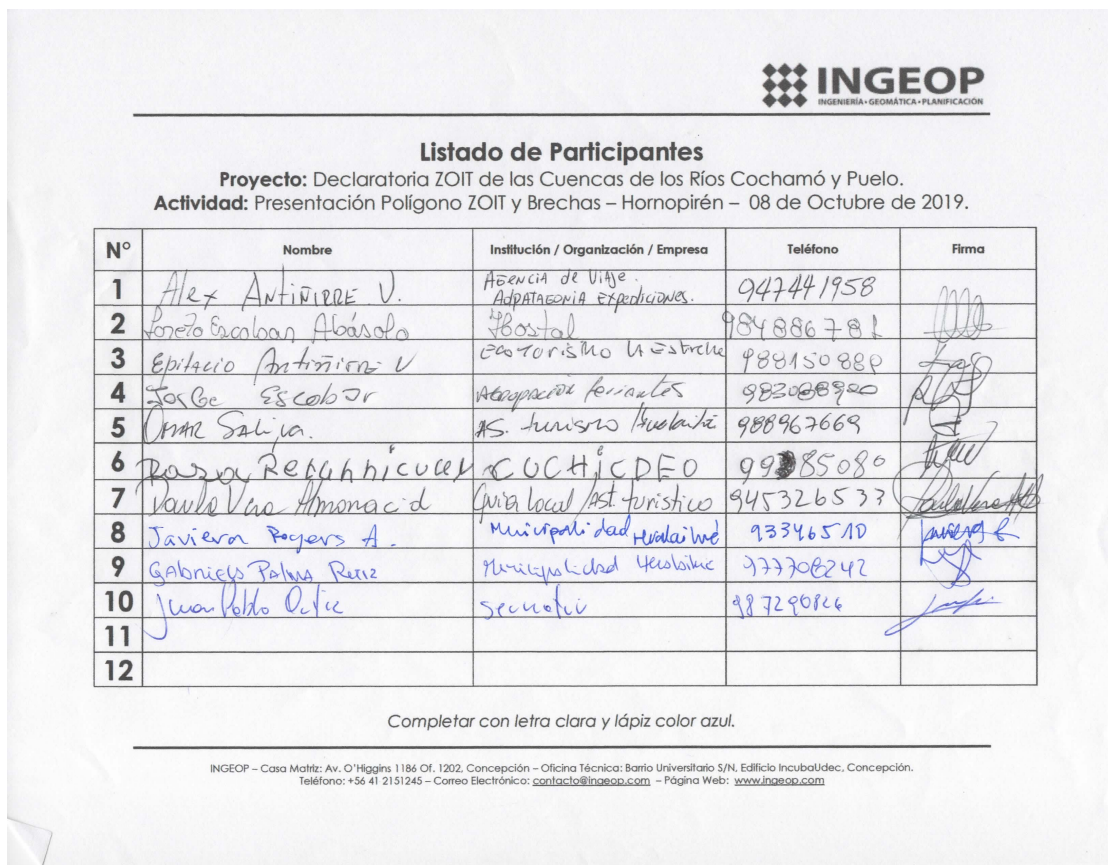 INGEOP
INGENIERÍA • GEOMÁTICA • PLANIFICACIÓN
Listado de Participantes
Proyecto: Declaratoria ZOIT de las Cuencas de los Ríos Cochamó y Puelo.
Actividad: Presentación Polígono ZOIT y Brechas – Hornopirén – 08 de Octubre de 2019.
N° Nombre Institución / Organización / Empresa Teléfono Firma
1 Alex ANTIÑIRRE V. AGENCIA de Viaje. 947441958
ADPATAGONIA EXPEDICIONES.
2 Loreto Escobar Abásolo Hostal
3 Epitacio Antiñirre V Ecoturismo
4 Jorge Escobar Agrupación
5 OMAR AS. turismo Hualaihué 988967669
6 Rosa
7 Paula Vera Almonacid Guia Local / Ast. turistico 945326533
8 Javiera Rogers A. Municipalidad Hualaihué 93346510
9 Gabriela Palma Ruiz Municipalidad Hualaihué 977708242
10 Juan Pablo Sernatur
11
12
Completar con letra clara y lápiz color azul.
INGEOP – Casa Matriz: Av. O'Higgins 1186 Of. 1202, Concepción – Oficina Técnica: Barrio Universitario S/N, Edificio IncubaUdec, Concepción.
Teléfono: +56 41 2151245 – Correo Electrónico: contacto@ingeop.com – Página Web: www.ingeop.com